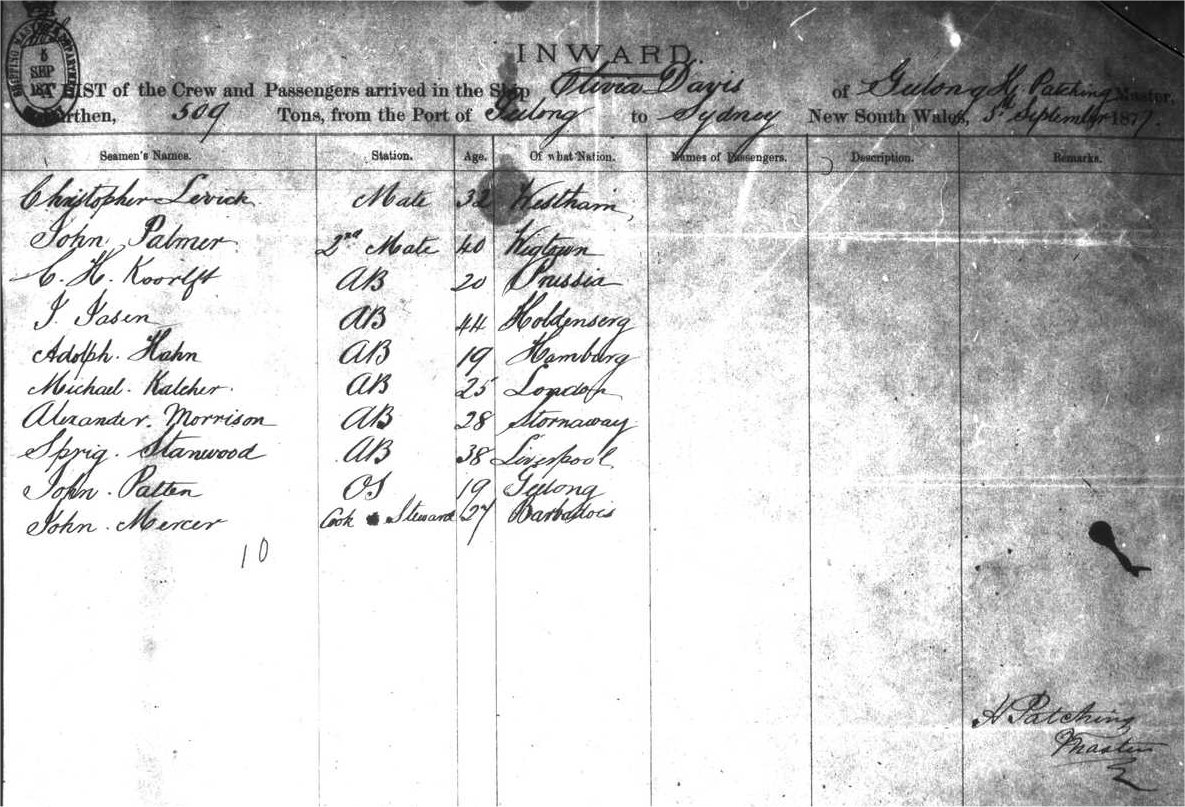 5
SEP
INWARD.
A LIST of the Crew and Passengers arrived in the Ship Olivia Davis of Geelong H. Patching Master,
Burthen, 509 Tons, from the Port of Geelong to Sydney New South Wales, 5th September 1877.
Seamen's Names. Station. Age. Of what Nation. Names of Passengers. Description. Remarks.
Christopher Levick Mate 32 Westham
John Palmer 2nd Mate 40 Wigtown
C. H. AB 20 Prussia
J. Jasen AB 44
Adolph. Hahn AB 19 Hamburg
Michael. Kalcher. AB 25 London
Alexander. Morrison AB 28 Stornaway
Sprig. Stanwood AB 38 Liverpool
John. Patten OS 19 Geelong
John. Mercer Cook & Steward 27 Barbadoes
10
H Patching
Master